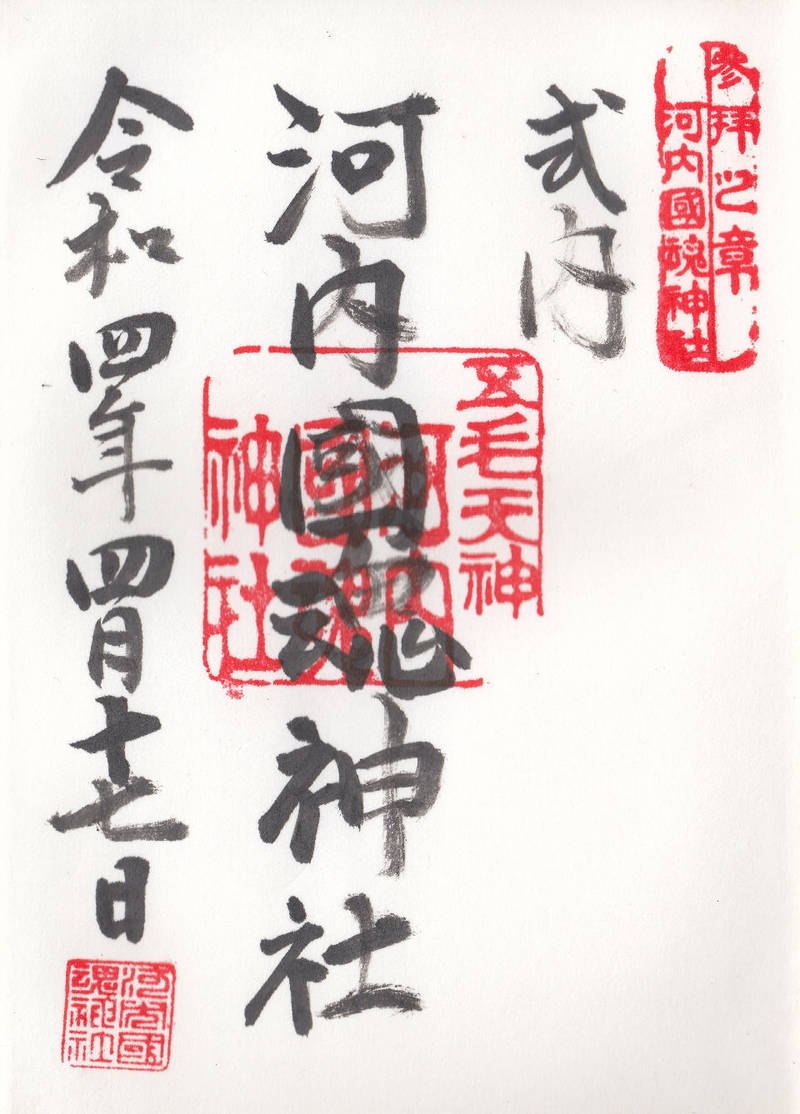 參拜之章
河内國魂神社
式内
五毛天神
河内國魂神社
河内國魂神社
令和四年四月十七日
河内國魂神社